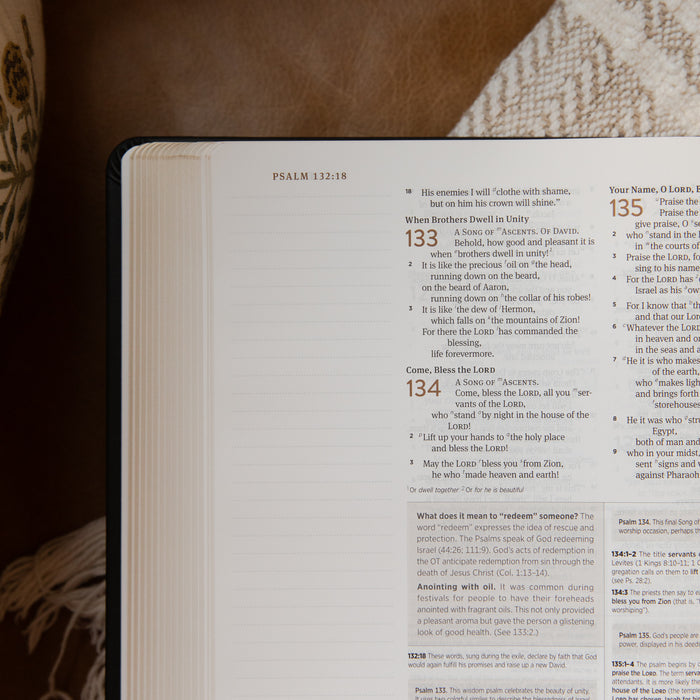 PSALM 132:18
18 His enemies I will clothe with shame,
but on him his crown will shine.”
When Brothers Dwell in Unity
133 A SONG OF ASCENTS. OF DAVID.
Behold, how good and pleasant it is
when brothers dwell in unity!
2 It is like the precious oil on the head,
running down on the beard,
on the beard of Aaron,
running down on the collar of his robes!
3 It is like the dew of Hermon,
which falls on the mountains of Zion!
For there the LORD has commanded the
blessing,
life forevermore.
Come, Bless the LORD
134 A SONG OF ASCENTS.
Come, bless the LORD, all you ser-
vants of the LORD,
who stand by night in the house of the
LORD!
2 Lift up your hands to the holy place
and bless the LORD!
3 May the LORD bless you from Zion,
he who made heaven and earth!
1 Or dwell together 2 Or for he is beautiful
What does it mean to “redeem” someone? The
word “redeem” expresses the idea of rescue and
protection. The Psalms speak of God redeeming
Israel (44:26; 111:9). God's acts of redemption in
the OT anticipate redemption from sin through the
death of Jesus Christ (Col. 1:13–14).
Anointing with oil. It was common during
festivals for people to have their foreheads
anointed with fragrant oils. This not only provided
a pleasant aroma but gave the person a glistening
look of good health. (See 133:2.)
132:18 These words, sung during the exile, declare by faith that God
would again fulfill his promises and raise up a new David.
Psalm 133. This wisdom psalm celebrates the beauty of unity.
Your Name, O LORD,
135 Praise the
Praise the
give praise, O
2 who stand in the
in the courts of
3 Praise the LORD, fo
sing to his name
4 For the LORD has
Israel as his ow
5 For I know that th
and that our Lor
6 Whatever the LORD
in heaven and o
in the seas and a
7 He it is who makes
of the earth,
who makes ligh
and brings forth
storehouses
8 He it was who stru
Egypt,
both of man and
9 who in your midst,
sent signs and w
against Pharaoh
Psalm 134. This final Song of
worship occasion, perhaps th
134:1–2 The title servants
Levites (1 Kings 8:10–11;
gregation calls on them to lift
(see Ps. 28:2).
134:3 The priests then say to
bless you from Zion (that is,
worshiping”).
Psalm 135. God's people are
power, displayed in his deed
135:1–4 The psalm begins by
praise the LORD. The term
attendants. It is more likely the
house of the LORD (the